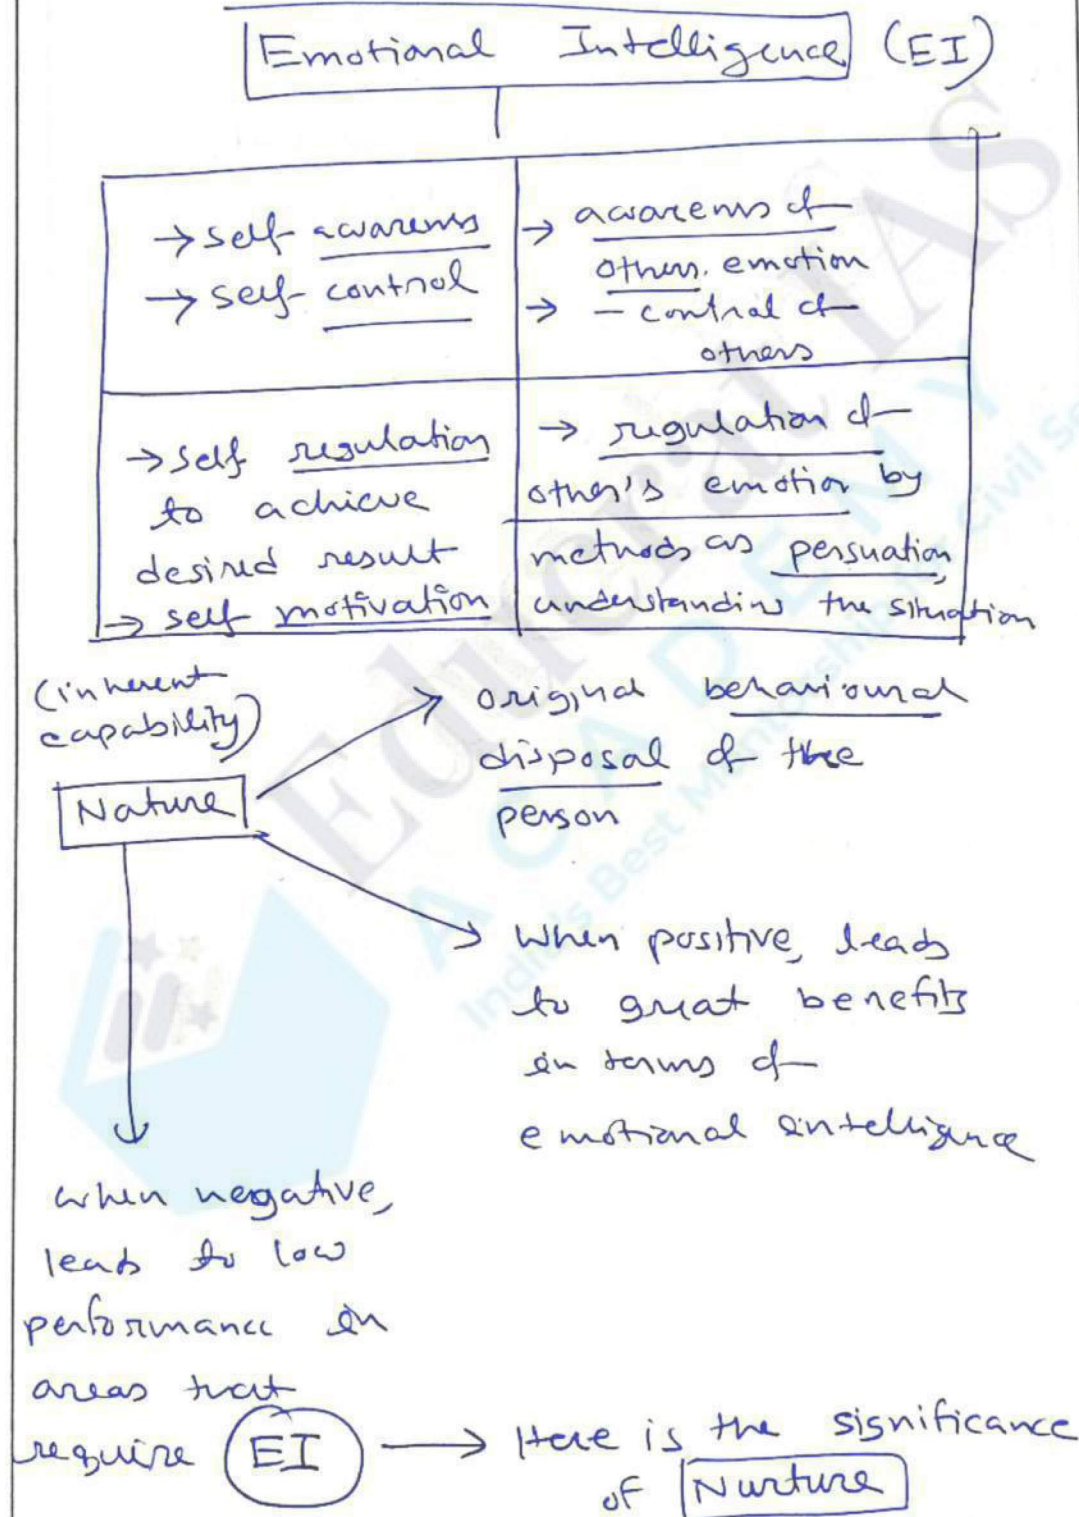 Emotional Intelligence (EI)
→ self-awareness
→ self-control
→ awareness of
others. emotion
→ - control of
others
→ self regulation
to achieve
desired result
→ self motivation
→ regulation of
other's emotion by
methods as persuation,
understanding the situation
(inherent
capability)
Nature
original behavioural
disposal of the
person
When positive, leads
to great benefits
in terms of
emotional intelligence
when negative,
leads to low
performance in
areas that
require EI → Here is the significance
of Nurture
Educrat IAS
ACADEMY
India's Best Mentorship
Civil Se